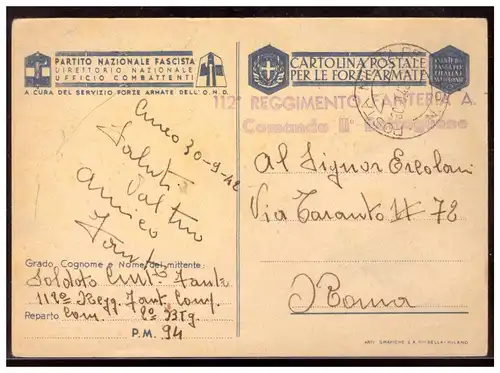 PARTITO NAZIONALE FASCISTA
DIRETTORIO NAZIONALE
UFFICIO COMBATTENTI
A CURA DEL SERVIZIO FORZE ARMATE DELL'O.N.D.
CARTOLINA POSTALE
PER LE FORZE ARMATE
112° REGGIMENTO FANTERIA A.
Comando II° Battaglione
Cuneo 30-9-42
Saluti
dal tuo
amico
Al Signor Ercolani
Via Taranto # 72
Roma
Grado, Cognome e Nome del mittente:
Soldato
112° Regg. Fant. Comp.
Reparto Com. 2° Btg.
P.M. 94
ARTI GRAFICHE S.A. PIZZI
MILANO